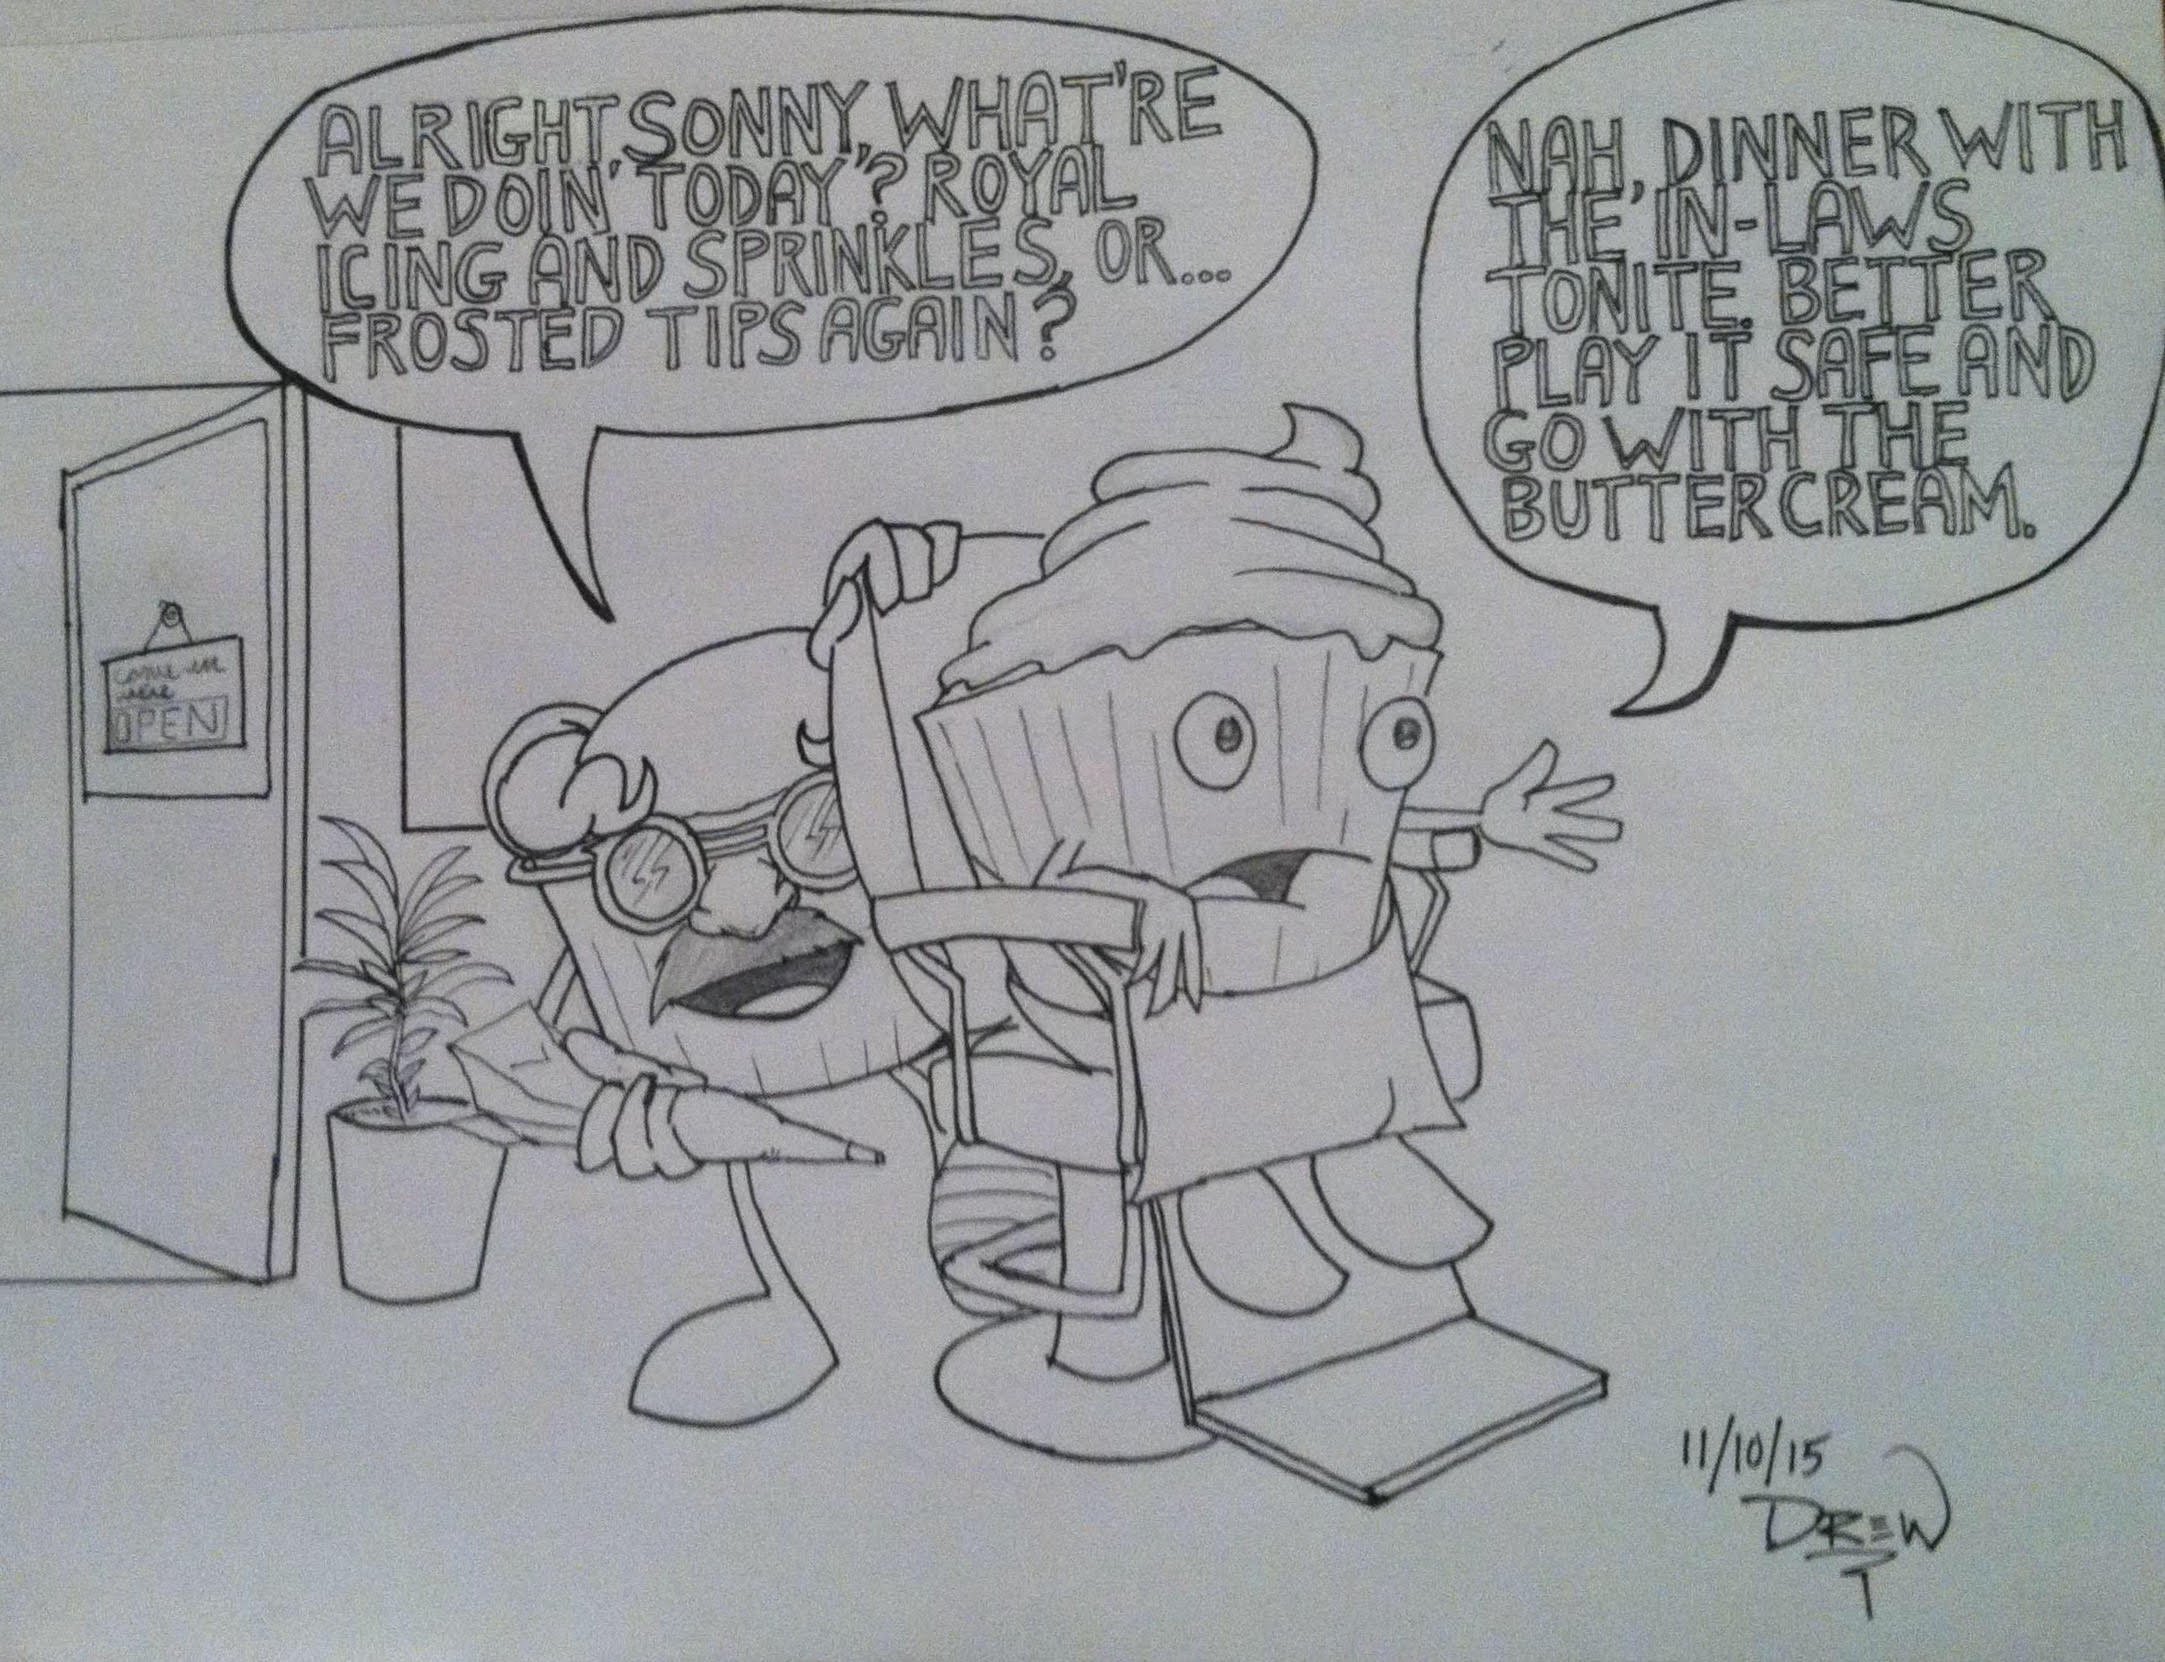 ALRIGHT, SONNY, WHAT'RE
WE DOIN' TODAY? ROYAL
ICING AND SPRINKLES, OR...
FROSTED TIPS AGAIN?
NAH, DINNER WITH
THE IN-LAWS
TONITE. BETTER
PLAY IT SAFE AND
GO WITH THE
BUTTERCREAM.
come in
we're
OPEN
11/10/15
DREW
T